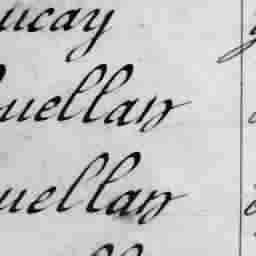 ucay
uellan
uellan